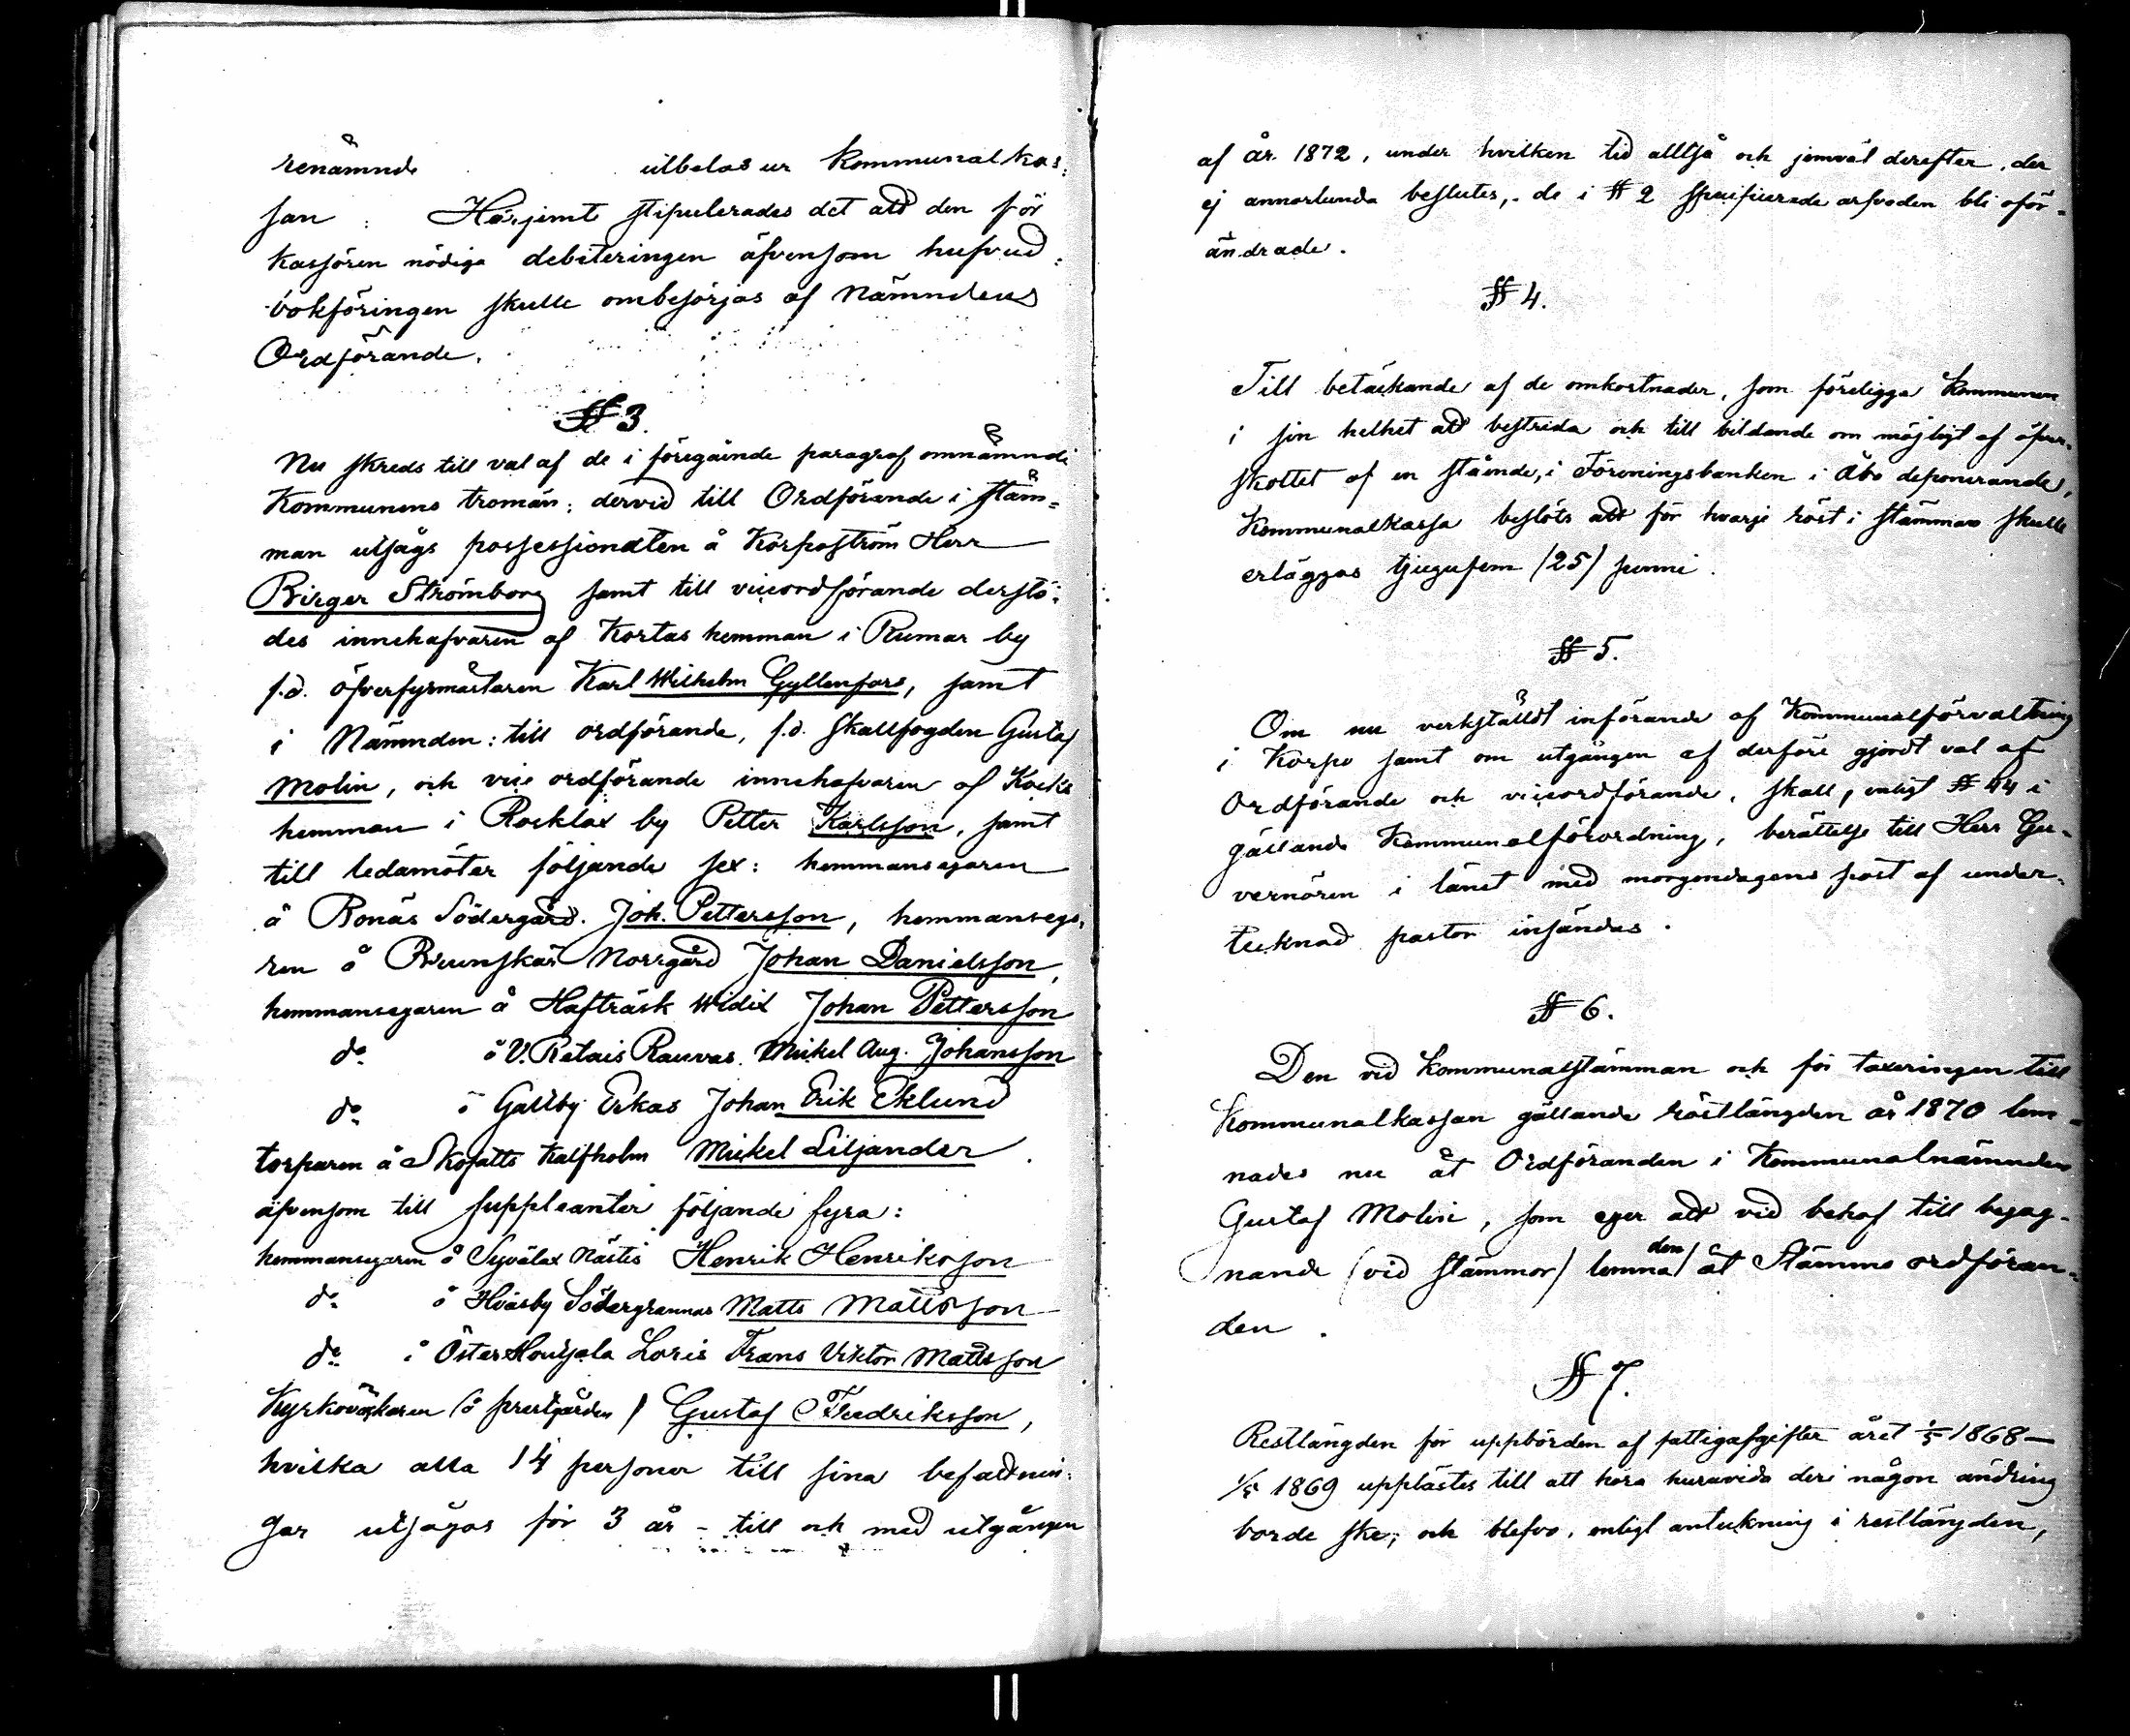 renämnde utbetas ur Kommunalkas=
san: Härjemte stipulerades det att den för
kassören nödiga debiteringen äfvensom hufvud=
bokföringen skulle ombesörjas af Nämndens
Ordförande.
§ 3.
Nu skreds till val af de i föregående paragraf omnämnde
Kommunens tromän; dervid till Ordförande i stäm=
man utsågs possessionaten å Korpoström Herr
Birger Strömborg samt till viceordförande derstä=
des innehafvaren af Kortas hemman i Rumar by
f.d. öfverfyrmästaren Karl Wilhelm Gyllenfors, samt
i Nämnden: till ordförande, f.d. Skallfogden Gustaf
Molin, och vice ordförande innehafvaren af Kocks
hemman i Rocklax by Petter Karlsson, samt
till ledamöter följande sex: hemmansegaren
å Bonäs Södergård Joh. Pettersson, hemmansega=
ren å Brunskär Norrgård Johan Danielsson,
hemmansegaren å Hafträsk Widix Johan Pettersson
do å V. Retais Rauvas Mickel Aug. Johansson
do å Gallby Erkas Johan Erik Eklund
torparen å Skofatts Kalfholm Mickel Liljander.
äfvensom till suppleanter följande fyra:
hemmansegaren å Syvälax Nästis Henrik Henriksson
do å Hväsby Södergrannas Matts Mattsson
do i Öster Houtsala Loris Frans Viktor Mattsson
Kyrkoväktaren (å prestgården) Gustaf Fredriksson,
hvilka alla 14 personer till sina befattnin=
gar utsågos för 3 år – till och med utgången
af år 1872, under hvilken tid alltså och jemväl derefter, der
ej annorlunda beslutes, de i § 2 specificerade arfvoden bli oför=
ändrade.
§ 4.
Till betäckande af de omkostnader, som föreligga Kommunen
i sin helhet att bestrida och till bildande om möjligt af öfver=
skottet af en stående, i Föreningsbanken i Åbo deponerande,
Kommunalkassa beslöts att för hvarje röst i stämman skulle
erläggas tjugufem (25) penni.
§ 5.
Om nu verkstäldt införande af Kommunalförvaltning
i Korpo samt om utgången af derföre gjordt val af
Ordförande och viceordförande, skall, enligt § 44 i
gällande Kommunalförordning, berättelse till Herr Gu=
vernören i länet med morgondagens post af under=
tecknad pastor insändas.
§ 6.
Den vid Kommunalstämman och för taxeringen till
Kommunalkassan gällande röstlängden år 1870 lem=
nades nu åt Ordföranden i Kommunalnämnden
Gustaf Molin, som eger att vid behof till begag=
nande (vid stämmor) lemna den åt Stämmo ordföran=
den.
§ 7.
Restlängden för uppbörden af fattigafgifter året 1/5 1868 –
1/5 1869 upplästes till att höra huruvida deri någon ändring
borde ske; och blefvo, enligt anteckning i restlängden,